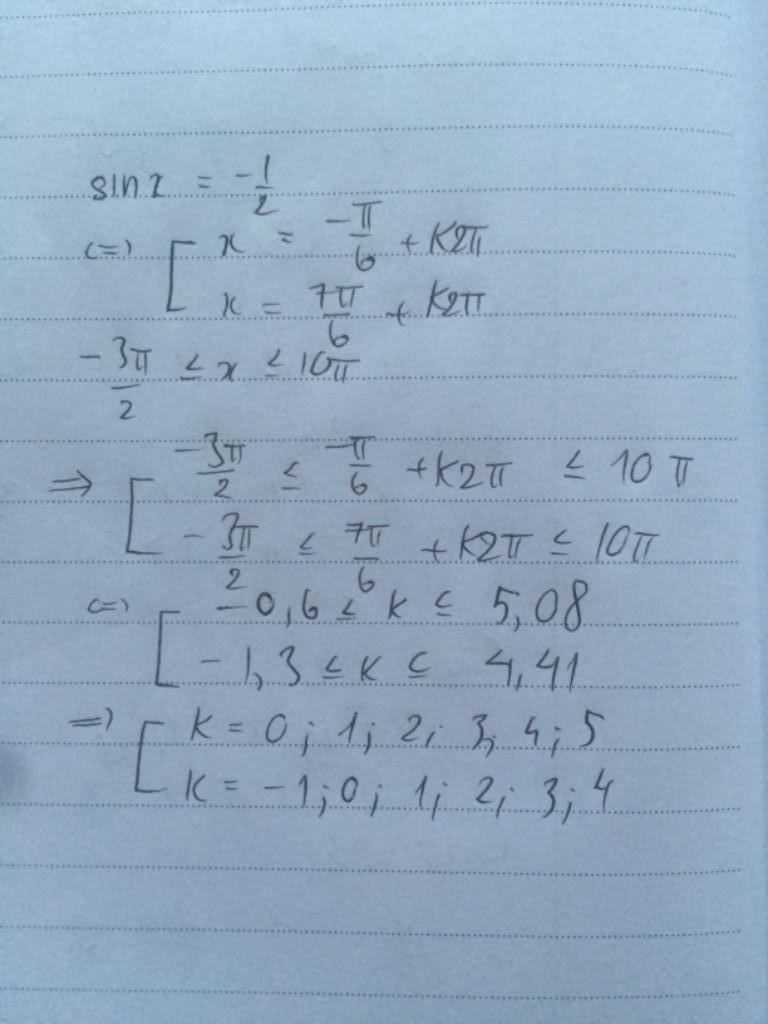 sin x = -1/2
(=) [ x = -π/6 + K2π
x = 7π/6 + K2π
-3π/2 ≤ x ≤ 10π
⇒ [ -3π/2 ≤ -π/6 + K2π ≤ 10π
-3π/2 ≤ 7π/6 + K2π ≤ 10π
(=) [ -0,6 ≤ K ≤ 5,08
-1,3 ≤ K ≤ 4,41
=) [ K = 0; 1; 2; 3; 4; 5
K = -1; 0; 1; 2; 3; 4